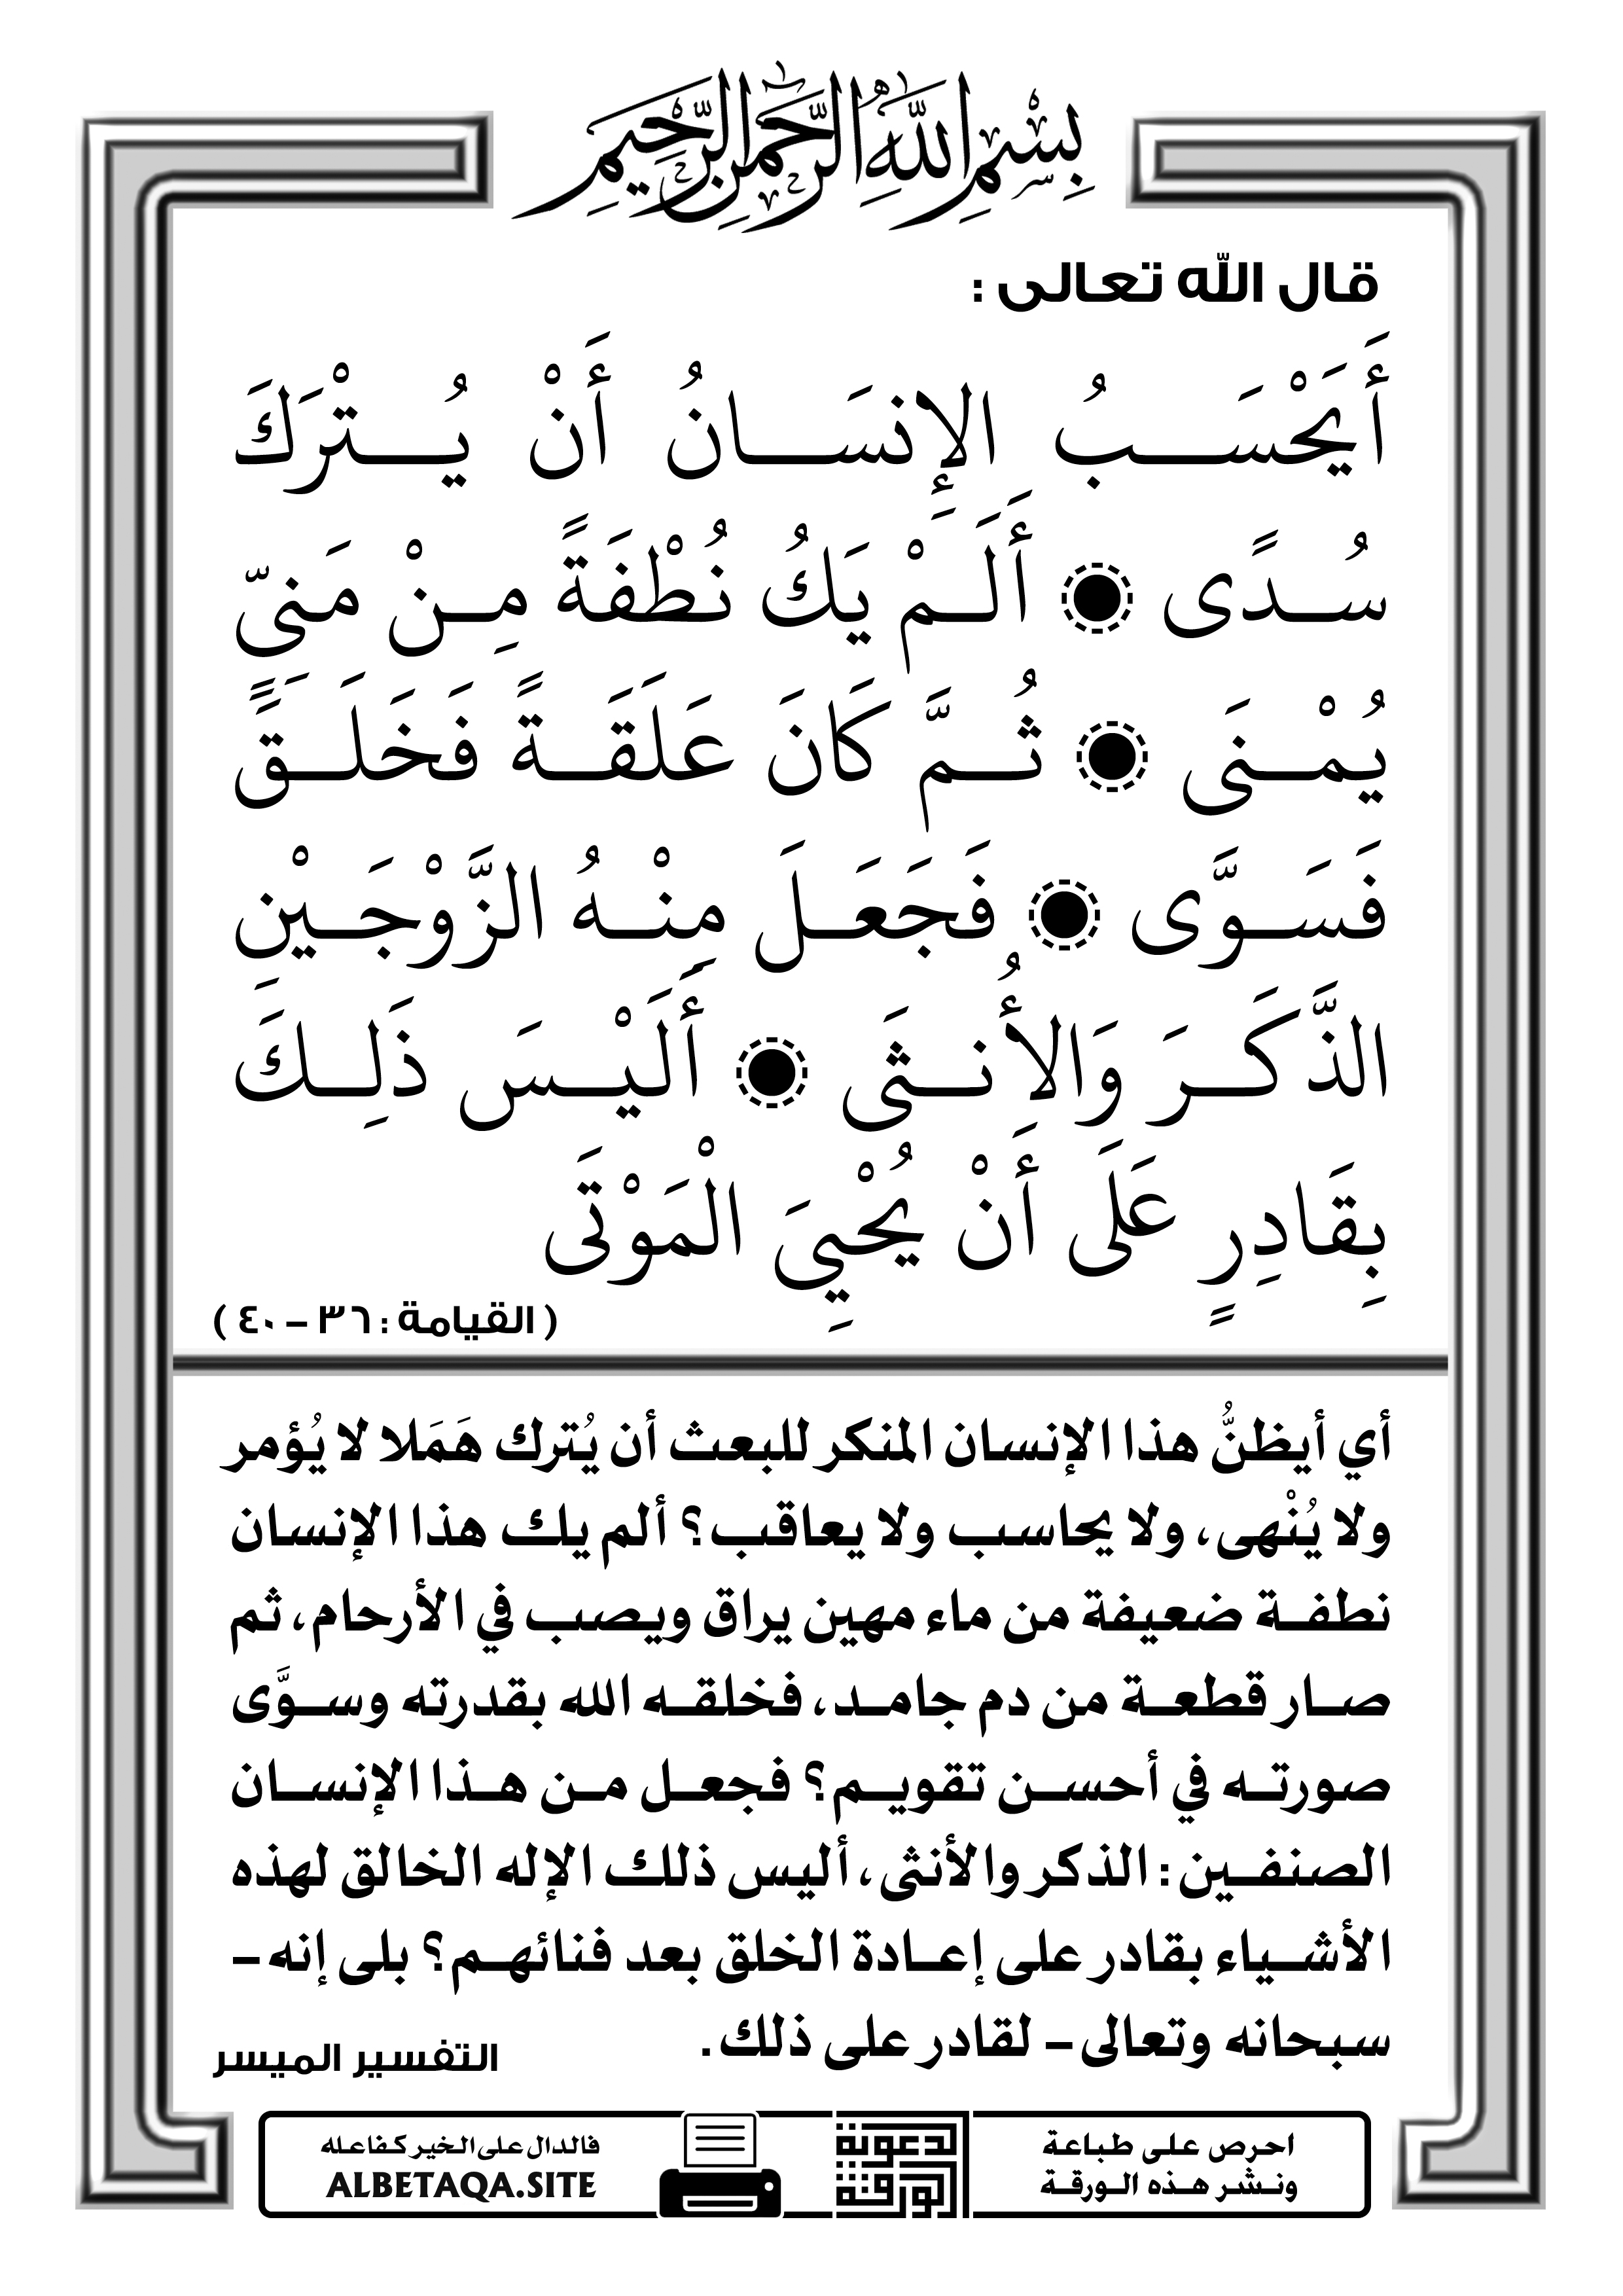 بِسْمِ اللَّهِ الرَّحْمَنِ الرَّحِيمِ
قال الله تعالى :
أَيَحْسَبُ الإِنسَانُ أَنْ يُتْرَكَ
سُدًى ۝ أَلَمْ يَكُ نُطْفَةً مِنْ مَنِيّ
يُمْنَى ۝ ثُمَّ كَانَ عَلَقَةً فَخَلَقَ
فَسَوَّى ۝ فَجَعَلَ مِنْهُ الزَّوْجَيْنِ
الذَّكَرَ وَالأُنثَى ۝ أَلَيْسَ ذَلِكَ
بِقَادِرٍ عَلَى أَنْ يُحْيِيَ الْمَوْتَى
( القيامة : ٣٦ – ٤٠ )
أي أيظنُّ هذا الإنسان المنكر للبعث أن يُترك هَمَلا لا يُؤمر
ولا يُنْهى، ولا يحاسب ولا يعاقب؟ ألم يك هذا الإنسان
نطفة ضعيفة من ماء مهين يراق ويصب في الأرحام، ثم
صار قطعة من دم جامد، فخلقه الله بقدرته وسوَّى
صورته في أحسن تقويم؟ فجعل من هذا الإنسان
الصنفين: الذكر والأنثى، أليس ذلك الإله الخالق لهذه
الأشياء بقادر على إعادة الخلق بعد فنائهم؟ بلى إنه –
سبحانه وتعالى – لقادر على ذلك.
التفسير الميسر
احرص على طباعة
ونشر هذه الورقة
الورقة
الدعوية
فالدال على الخير كفاعله
ALBETAQA.SITE